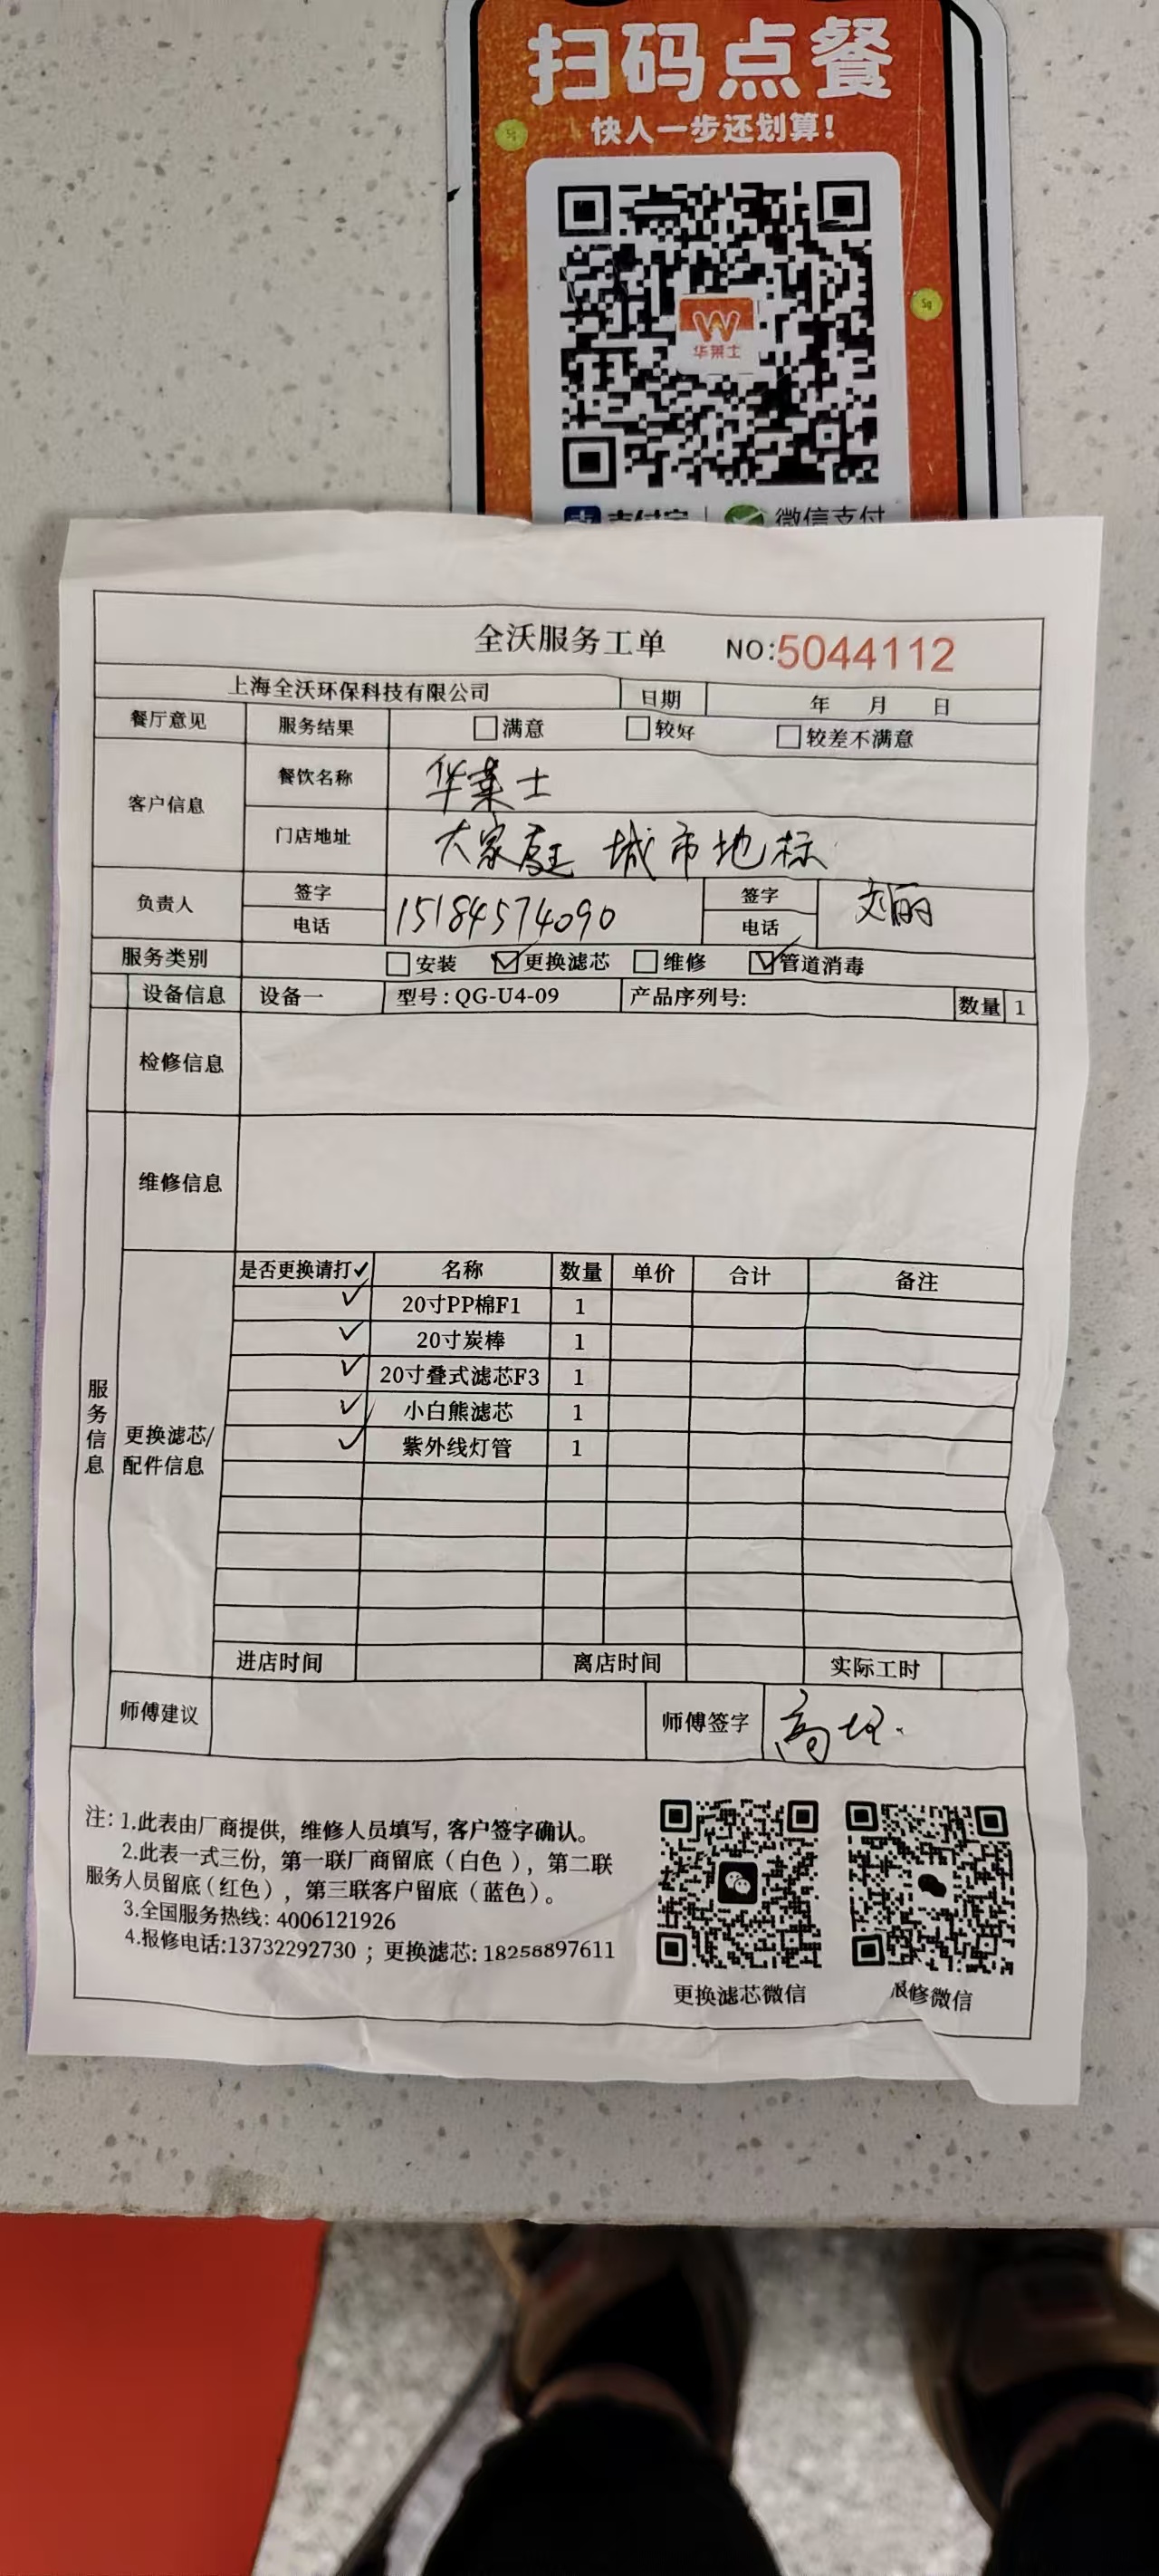 扫码点餐
快人一步还划算!
华莱士
支付宝 | 微信支付
全沃服务工单 NO:5044112
上海全沃环保科技有限公司 日期 年 月 日
餐厅意见 服务结果 □满意 □较好 □较差不满意
客户信息 餐饮名称 华莱士
门店地址 大家庭 城市地标
负责人 签字 电话 15184574090 签字 电话 刘丽
服务类别 □安装 ☑更换滤芯 □维修 ☑管道消毒
设备信息 设备一 型号:QG-U4-09 产品序列号: 数量 1
检修信息
维修信息
服务信息
更换滤芯/配件信息
是否更换请打✓ 名称 数量 单价 合计 备注
✓ 20寸PP棉F1 1
✓ 20寸炭棒 1
✓ 20寸叠式滤芯F3 1
✓ 小白熊滤芯 1
✓ 紫外线灯管 1
进店时间 离店时间 实际工时
师傅建议 师傅签字 高
注: 1.此表由厂商提供, 维修人员填写, 客户签字确认。
2.此表一式三份, 第一联厂商留底(白色), 第二联
服务人员留底(红色), 第三联客户留底(蓝色)。
3.全国服务热线: 4006121926
4.报修电话:13732292730 ; 更换滤芯: 18258897611
更换滤芯微信 报修微信